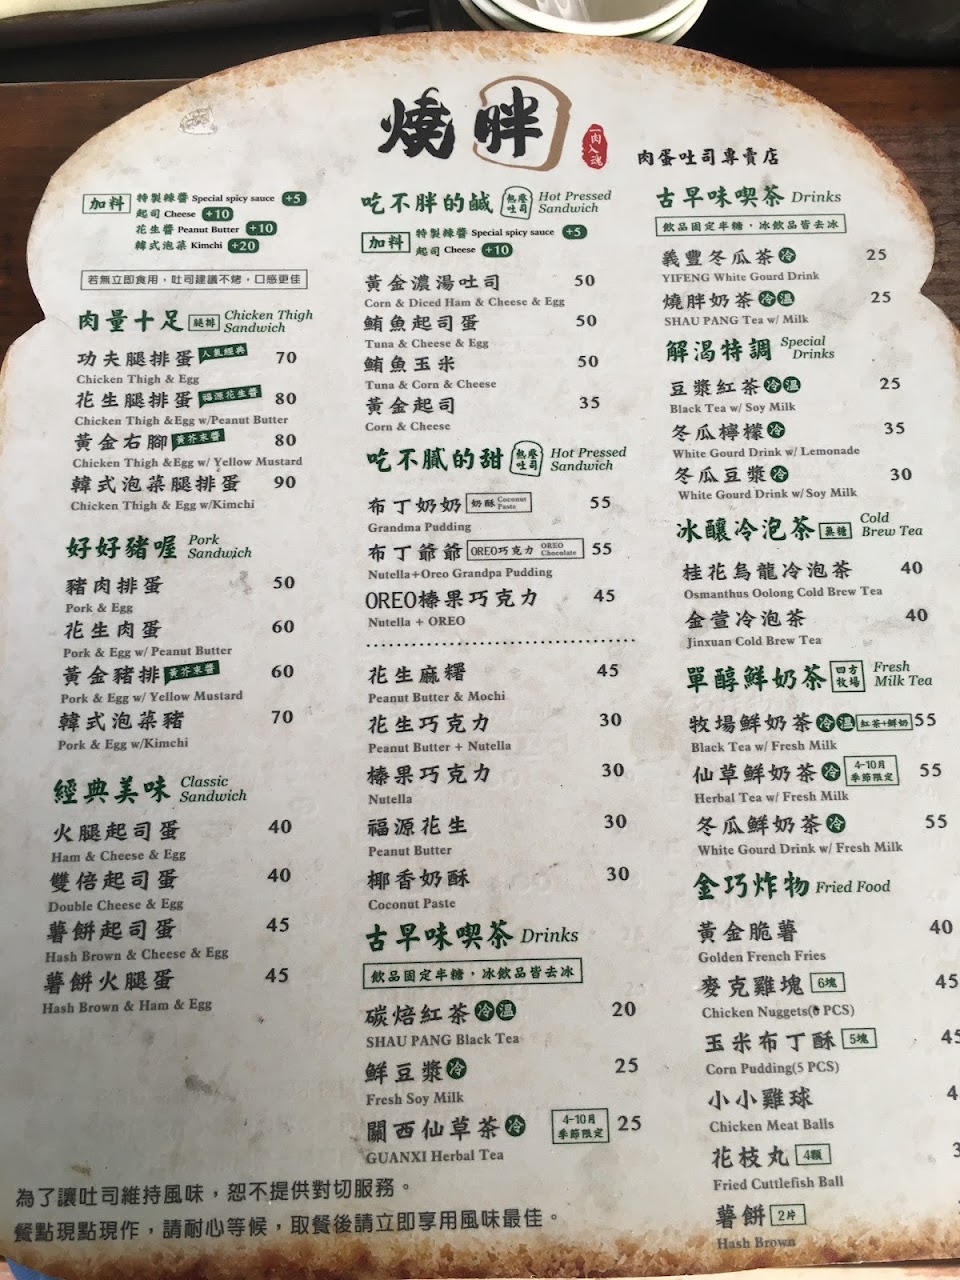 燒胖
一肉入魂
肉蛋吐司專賣店
加料 特製辣醬 Special spicy sauce +5
起司 Cheese +10
花生醬 Peanut Butter +10
韓式泡菜 Kimchi +20
若無立即食用，吐司建議不烤，口感更佳
肉量十足 腿排 Chicken Thigh Sandwich
功夫腿排蛋 人氣經典 70
Chicken Thigh & Egg
花生腿排蛋 福源花生醬 80
Chicken Thigh &Egg w/Peanut Butter
黃金右腳 黃芥末醬 80
Chicken Thigh &Egg w/ Yellow Mustard
韓式泡菜腿排蛋 90
Chicken Thigh & Egg w/Kimchi
好好豬喔 Pork Sandwich
豬肉排蛋 50
Pork & Egg
花生肉蛋 60
Pork & Egg w/ Peanut Butter
黃金豬排 黃芥末醬 60
Pork & Egg w/ Yellow Mustard
韓式泡菜豬 70
Pork & Egg w/Kimchi
經典美味 Classic Sandwich
火腿起司蛋 40
Ham & Cheese & Egg
雙倍起司蛋 40
Double Cheese & Egg
薯餅起司蛋 45
Hash Brown & Cheese & Egg
薯餅火腿蛋 45
Hash Brown & Ham & Egg
吃不胖的鹹 熱壓吐司 Hot Pressed Sandwich
加料 特製辣醬 Special spicy sauce +5
起司 Cheese +10
黃金濃湯吐司 50
Corn & Diced Ham & Cheese & Egg
鮪魚起司蛋 50
Tuna & Cheese & Egg
鮪魚玉米 50
Tuna & Corn & Cheese
黃金起司 35
Corn & Cheese
吃不膩的甜 熱壓吐司 Hot Pressed Sandwich
布丁奶奶 奶酥 Coconut Paste 55
Grandma Pudding
布丁爺爺 OREO巧克力 OREO Chocolate 55
Nutella+Oreo Grandpa Pudding
OREO榛果巧克力 45
Nutella + OREO
花生麻糬 45
Peanut Butter & Mochi
花生巧克力 30
Peanut Butter + Nutella
榛果巧克力 30
Nutella
福源花生 30
Peanut Butter
椰香奶酥 30
Coconut Paste
古早味喫茶 Drinks
飲品固定半糖，冰飲品皆去冰
碳焙紅茶 冷 溫 20
SHAU PANG Black Tea
鮮豆漿 冷 25
Fresh Soy Milk
關西仙草茶 冷 4-10月 季節限定 25
GUANXI Herbal Tea
古早味喫茶 Drinks
飲品固定半糖，冰飲品皆去冰
義豐冬瓜茶 冷 25
YIFENG White Gourd Drink
燒胖奶茶 冷 溫 25
SHAU PANG Tea w/ Milk
解渴特調 Special Drinks
豆漿紅茶 冷 溫 25
Black Tea w/ Soy Milk
冬瓜檸檬 冷 35
White Gourd Drink w/ Lemonade
冬瓜豆漿 冷 30
White Gourd Drink w/ Soy Milk
冰釀冷泡茶 無糖 Cold Brew Tea
桂花烏龍冷泡茶 40
Osmanthus Oolong Cold Brew Tea
金萱冷泡茶 40
Jinxuan Cold Brew Tea
單醇鮮奶茶 四方牧場 Fresh Milk Tea
牧場鮮奶茶 冷 溫 紅茶+鮮奶 55
Black Tea w/ Fresh Milk
仙草鮮奶茶 冷 4-10月 季節限定 55
Herbal Tea w/ Fresh Milk
冬瓜鮮奶茶 冷 55
White Gourd Drink w/ Fresh Milk
金巧炸物 Fried Food
黃金脆薯 40
Golden French Fries
麥克雞塊 6塊 45
Chicken Nuggets(6 PCS)
玉米布丁酥 5塊 45
Corn Pudding(5 PCS)
小小雞球 4
Chicken Meat Balls
花枝丸 4顆 3
Fried Cuttlefish Ball
薯餅 2片
Hash Brown
為了讓吐司維持風味，恕不提供對切服務。
餐點現點現作，請耐心等候，取餐後請立即享用風味最佳。